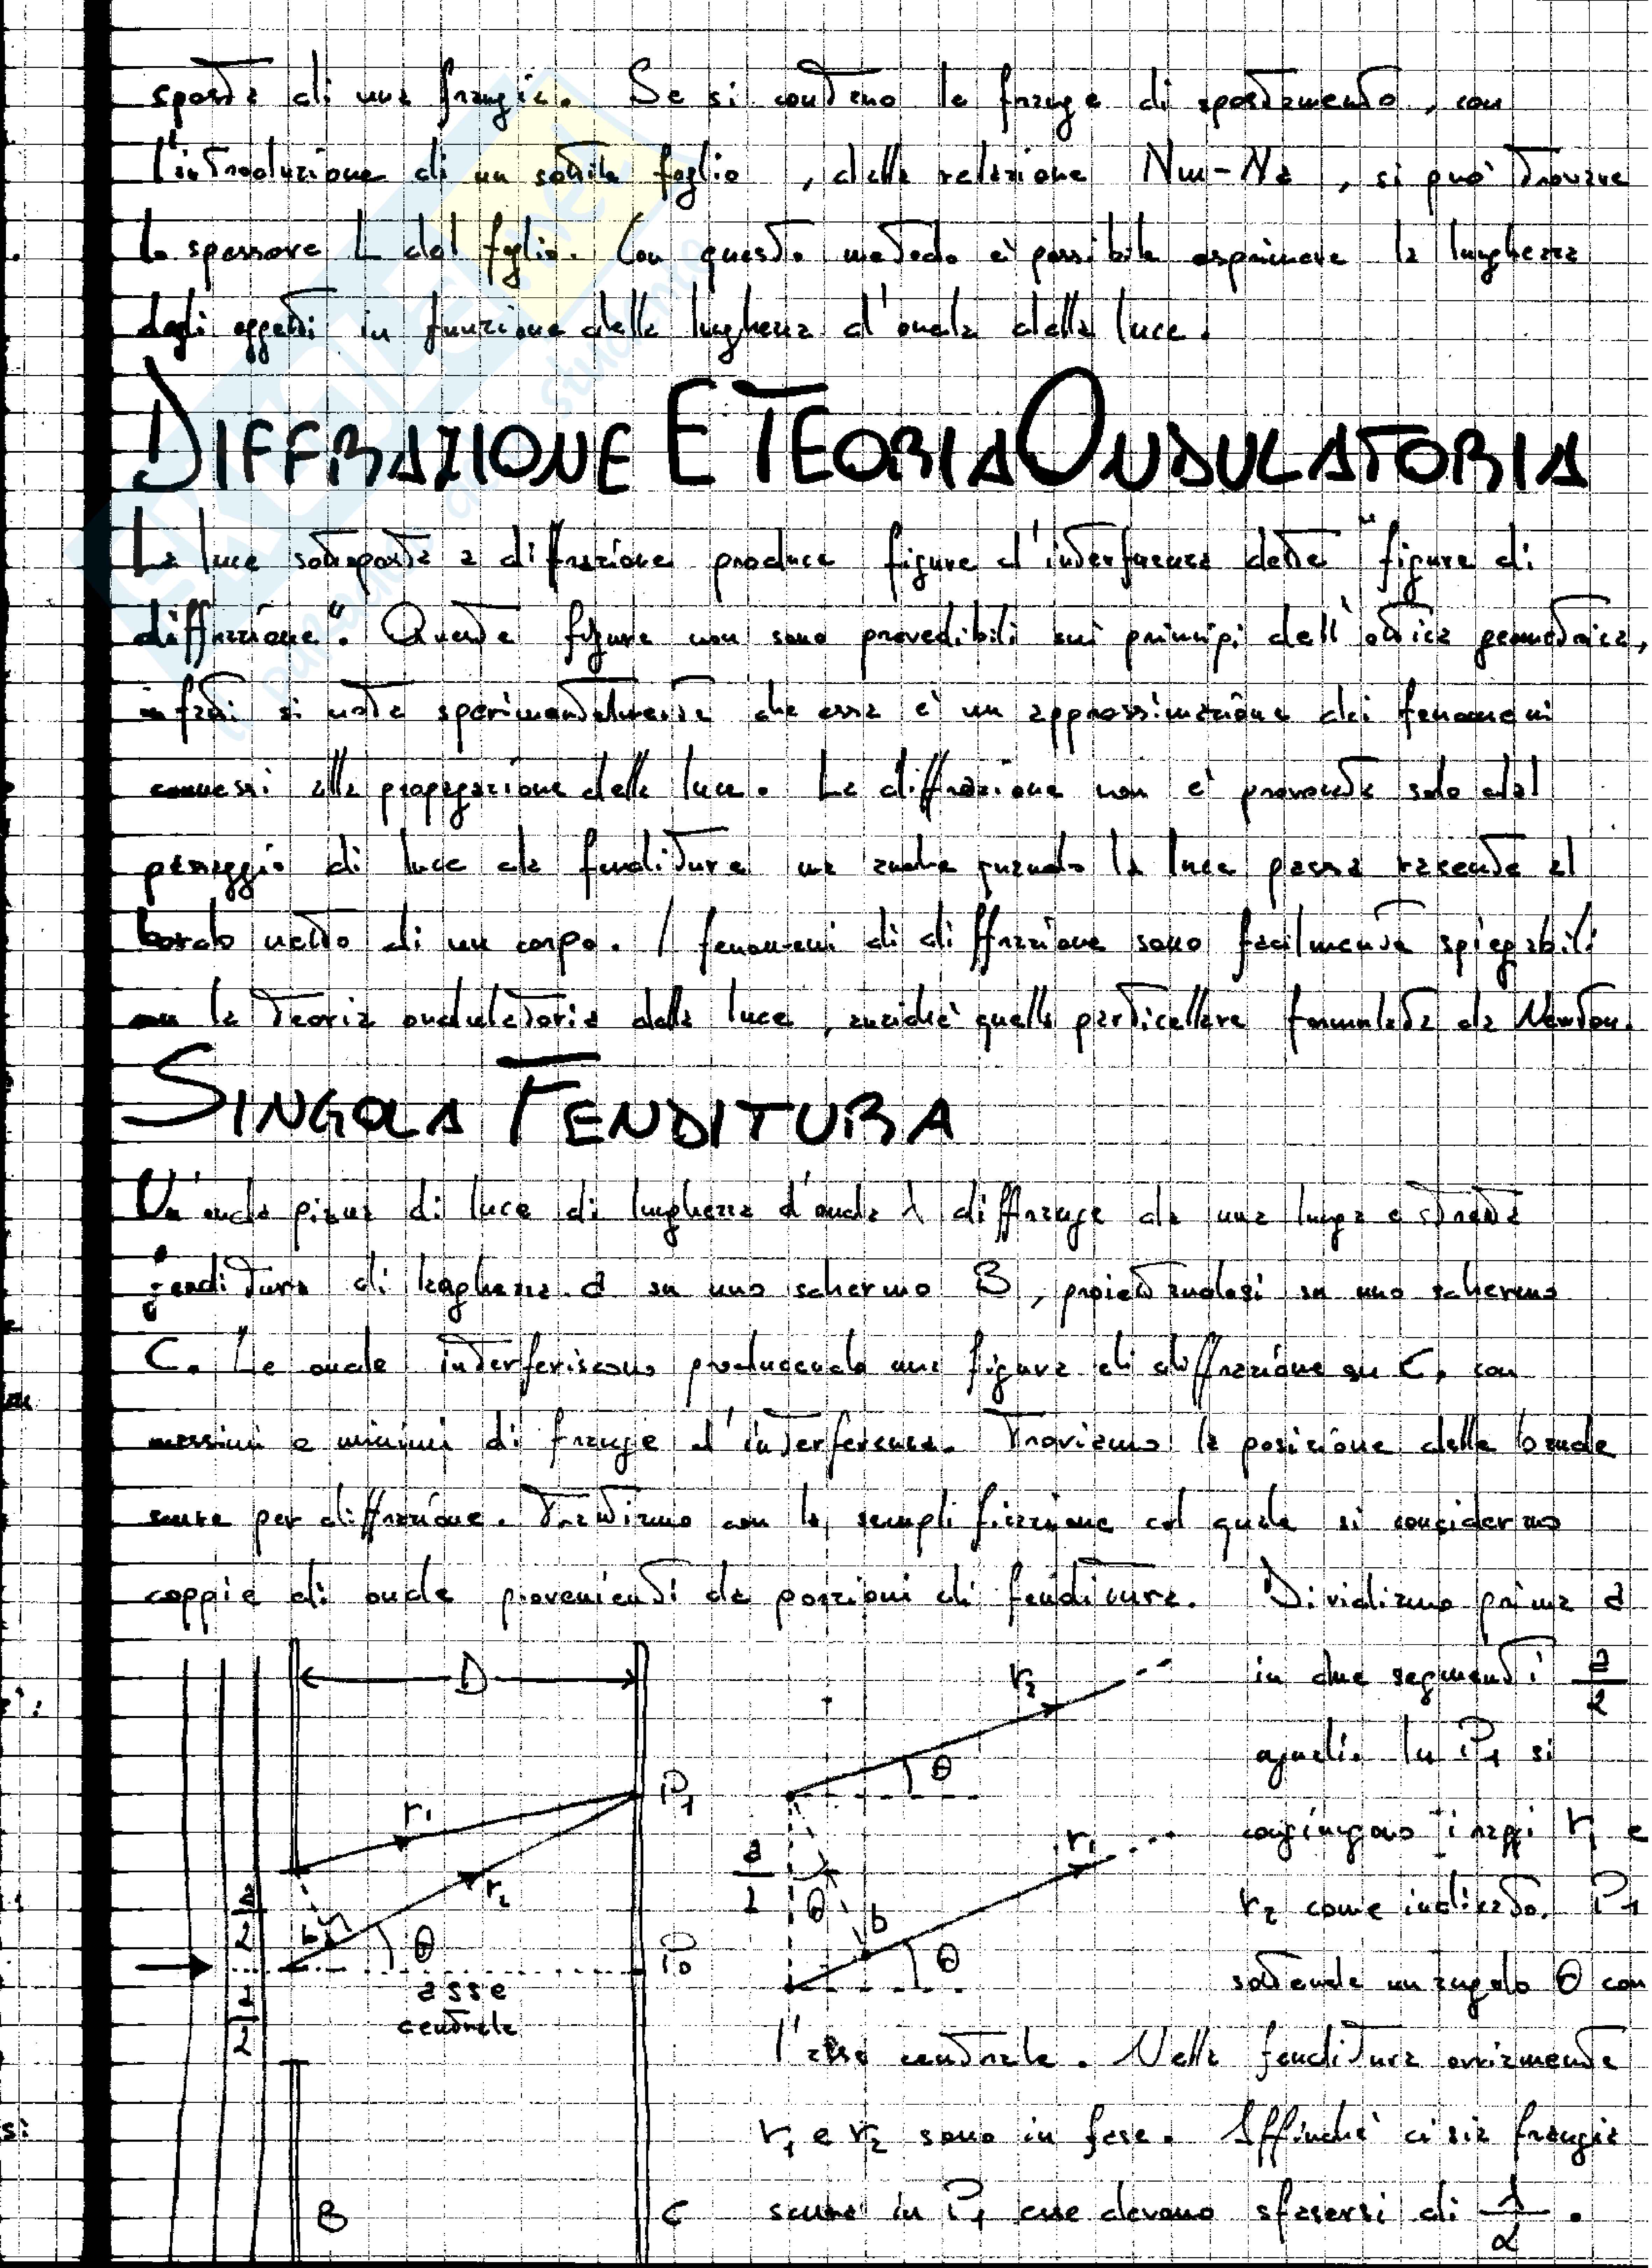 sposta di una frangia. Se si contano le frange di spostamento, con
l'introduzione di un sottile foglio, dalla relazione Nm-Na, si può trovare
lo spessore L del foglio. Con questo metodo è possibile esprimere la lunghezza
degli oggetti in funzione della lunghezza d'onda della luce.
DIFFRAZIONE E TEORIA ONDULATORIA
La luce sottoposta a diffrazione produce figure d'interferenza dette "figure di
diffrazione". Queste figure non sono prevedibili sui principi dell'ottica geometrica,
infatti si nota sperimentalmente che essa è un approssimazione dei fenomeni
connessi alla propagazione della luce. La diffrazione non è provocata solo dal
passaggio di luce da fenditure ma anche quando la luce passa rasente al
bordo netto di un corpo. I fenomeni di diffrazione sono facilmente spiegabili
con la teoria ondulatoria della luce, anziché quella particellare formulata da Newton.
SINGOLA FENDITURA
Un'onda piana di luce di lunghezza d'onda λ diffrange da una lunga e stretta
fenditura di larghezza a su uno schermo B, proiettandosi su uno schermo
C. Le onde interferiscono producendo una figura di diffrazione su C, con
massimi e minimi di frange d'interferenza. Troviamo la posizione delle bande
scure per diffrazione. Trattiamo con la semplificazione col quale si considerano
coppie di onde provenienti da porzioni di fenditura. Dividiamo prima a
in due segmenti a/2
uguali. In P1 si
congiungono i raggi r1 e
r2 come indicato. P1
sottende un angolo θ con
l'asse centrale. Nella fenditura ovviamente
r1 e r2 sono in fase. Affinché ci sia frangia
scura in P1 esse devono sfasarsi di λ/2.
D
r1
r2
b
θ
P1
P0
a/2
a/2
asse
centrale
B
C
r2
θ
r1
a/2
θ
b
θ
si: